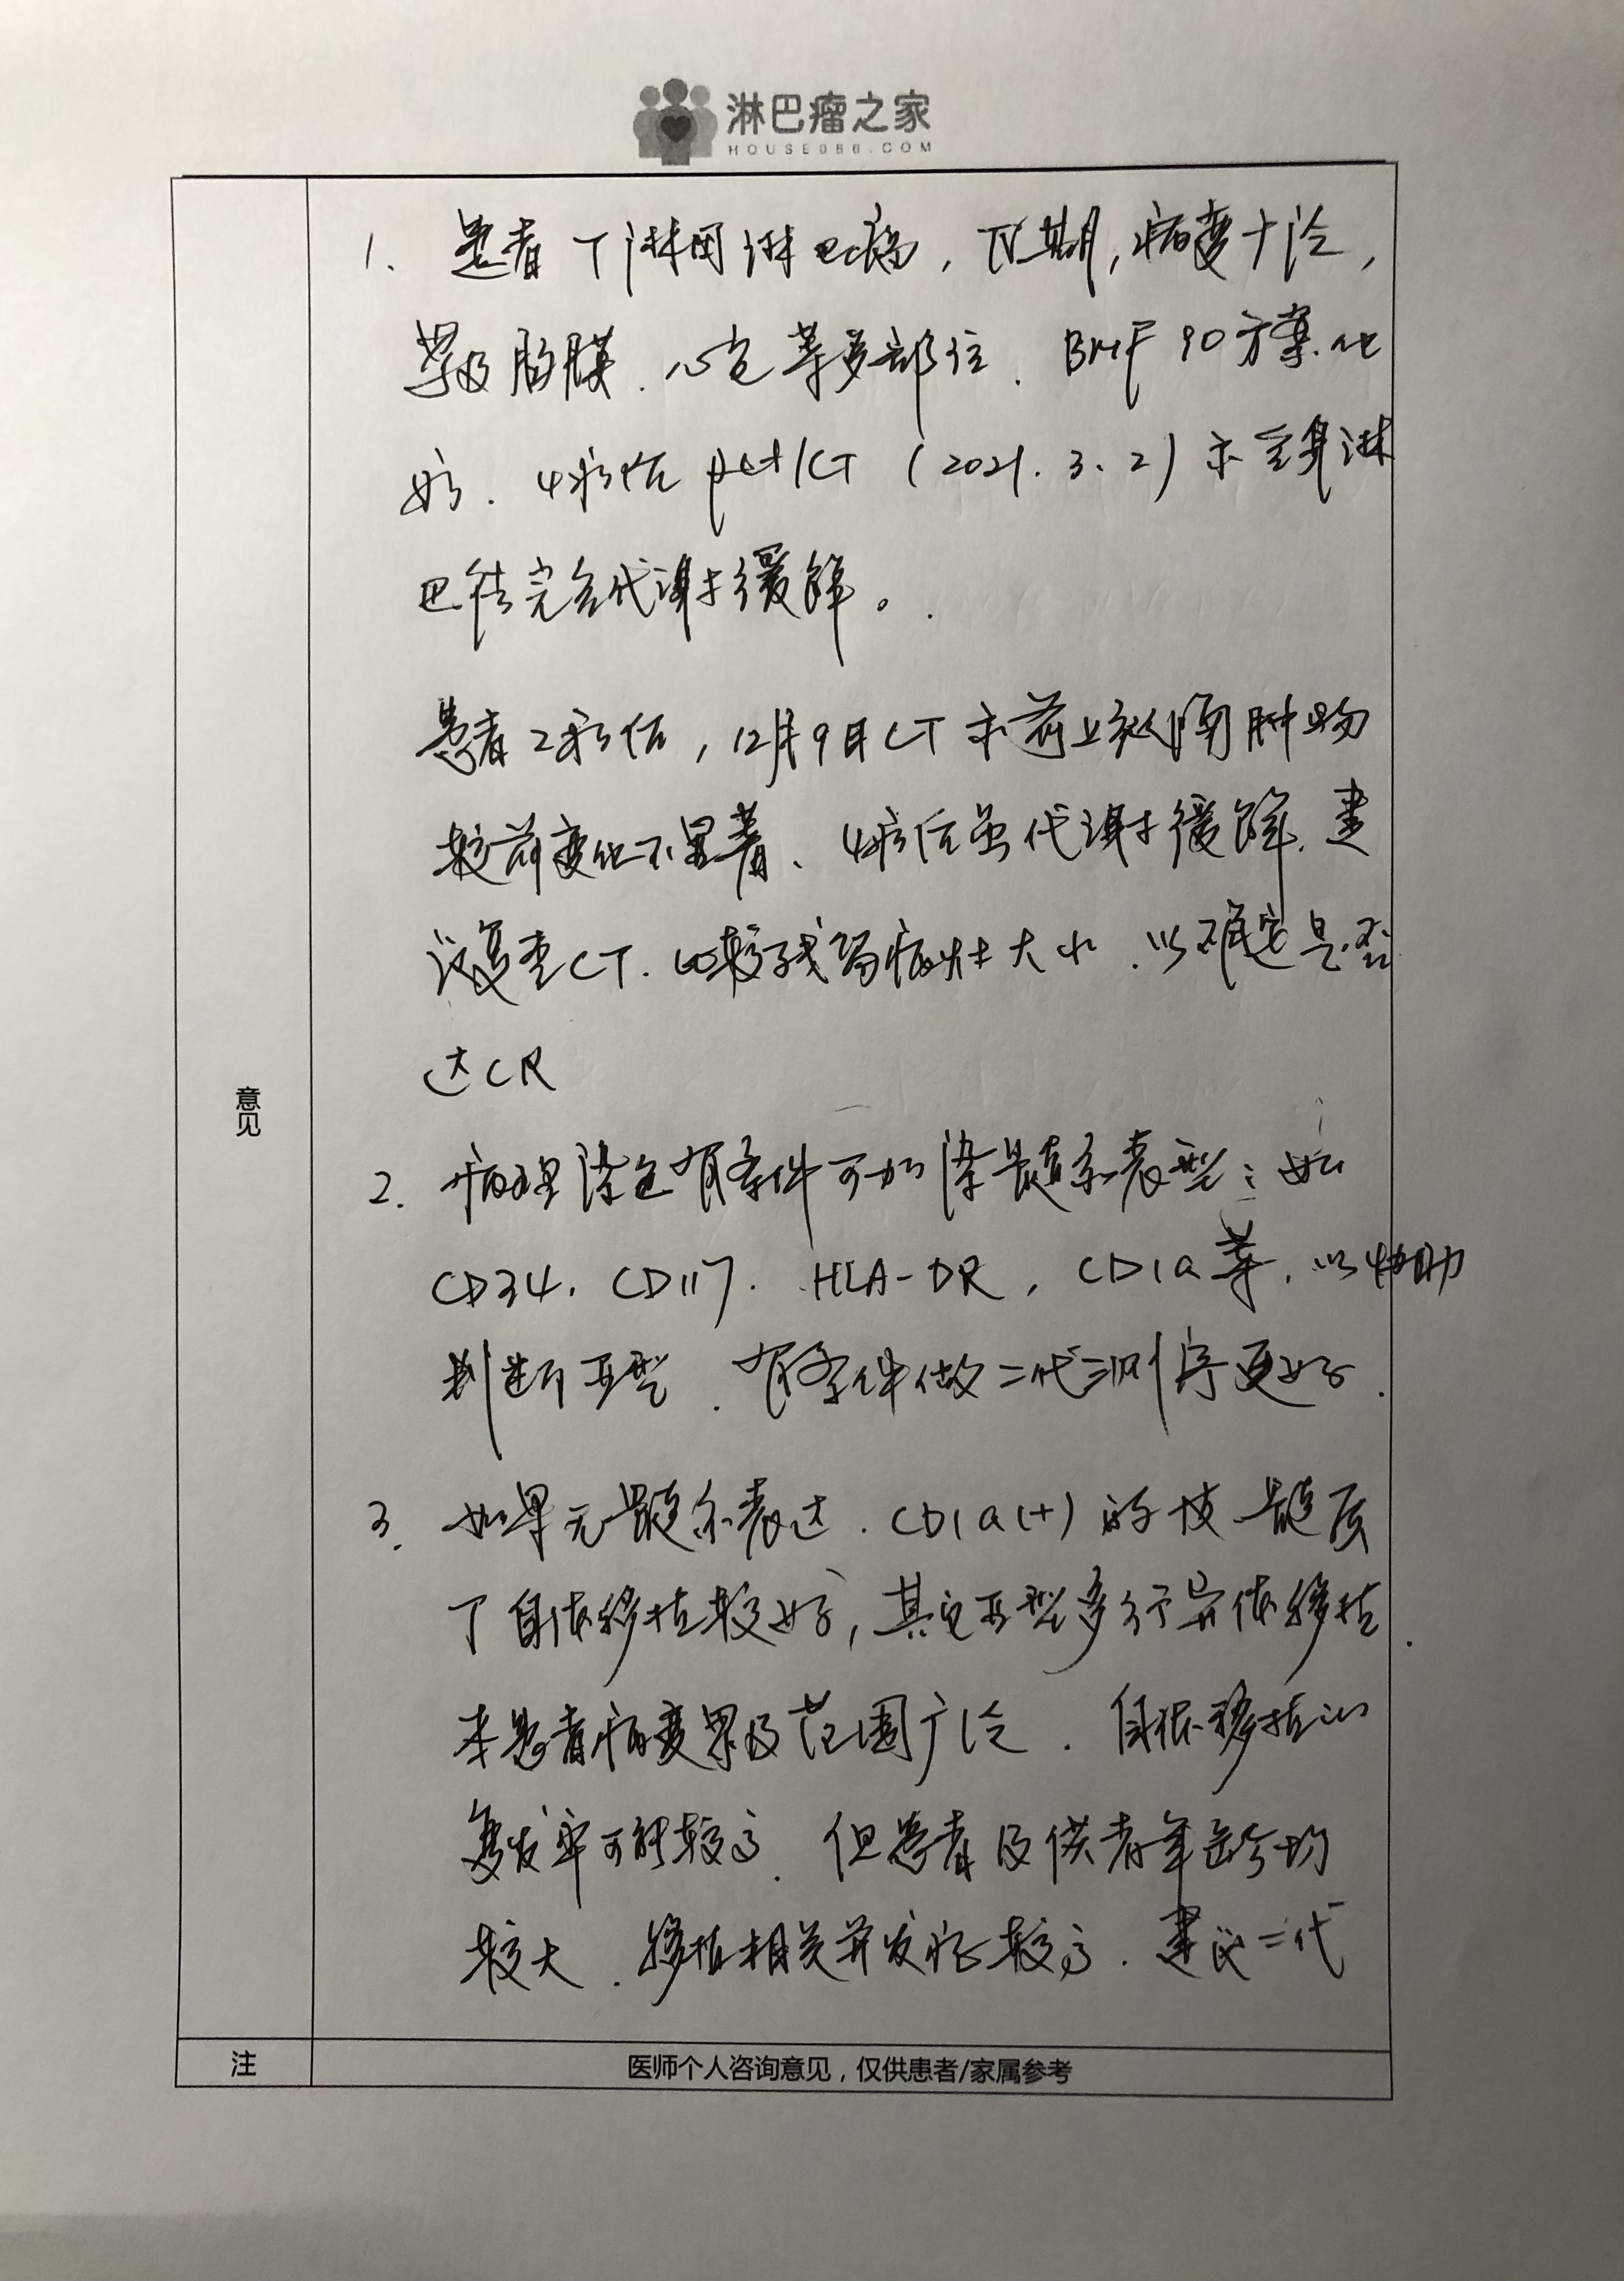 淋巴瘤之家
HOUSE086.COM
意见
1. 患者T淋母淋巴瘤，IV期，病变广泛，
累及胸膜、心包等多部位．BMF90方案化
疗．4疗后pet/CT（2021.3.2）示全身淋
巴结完全代谢缓解。
患者2疗后，12月9日CT示前上纵隔肿物
较前变化不显著、4疗后虽代谢缓解．建
议复查CT．比较残留病灶大小．以确定是否
达CR
2. 病理染色有条件可加染髓系表型：如
CD34．CD117．HLA-DR，CD1a等．以协助
判断亚型．有条件做二代测序更好．
3. 如果无髓系表达．CD1a(+)的皮髓质
T自体移植较好，其它亚型多行异体移植．
本患者病变累及范围广泛．自体移植的
复发率可能较高．但患者及供者年龄均
较大．移植相关并发症较高．建议二代
注
医师个人咨询意见，仅供患者/家属参考